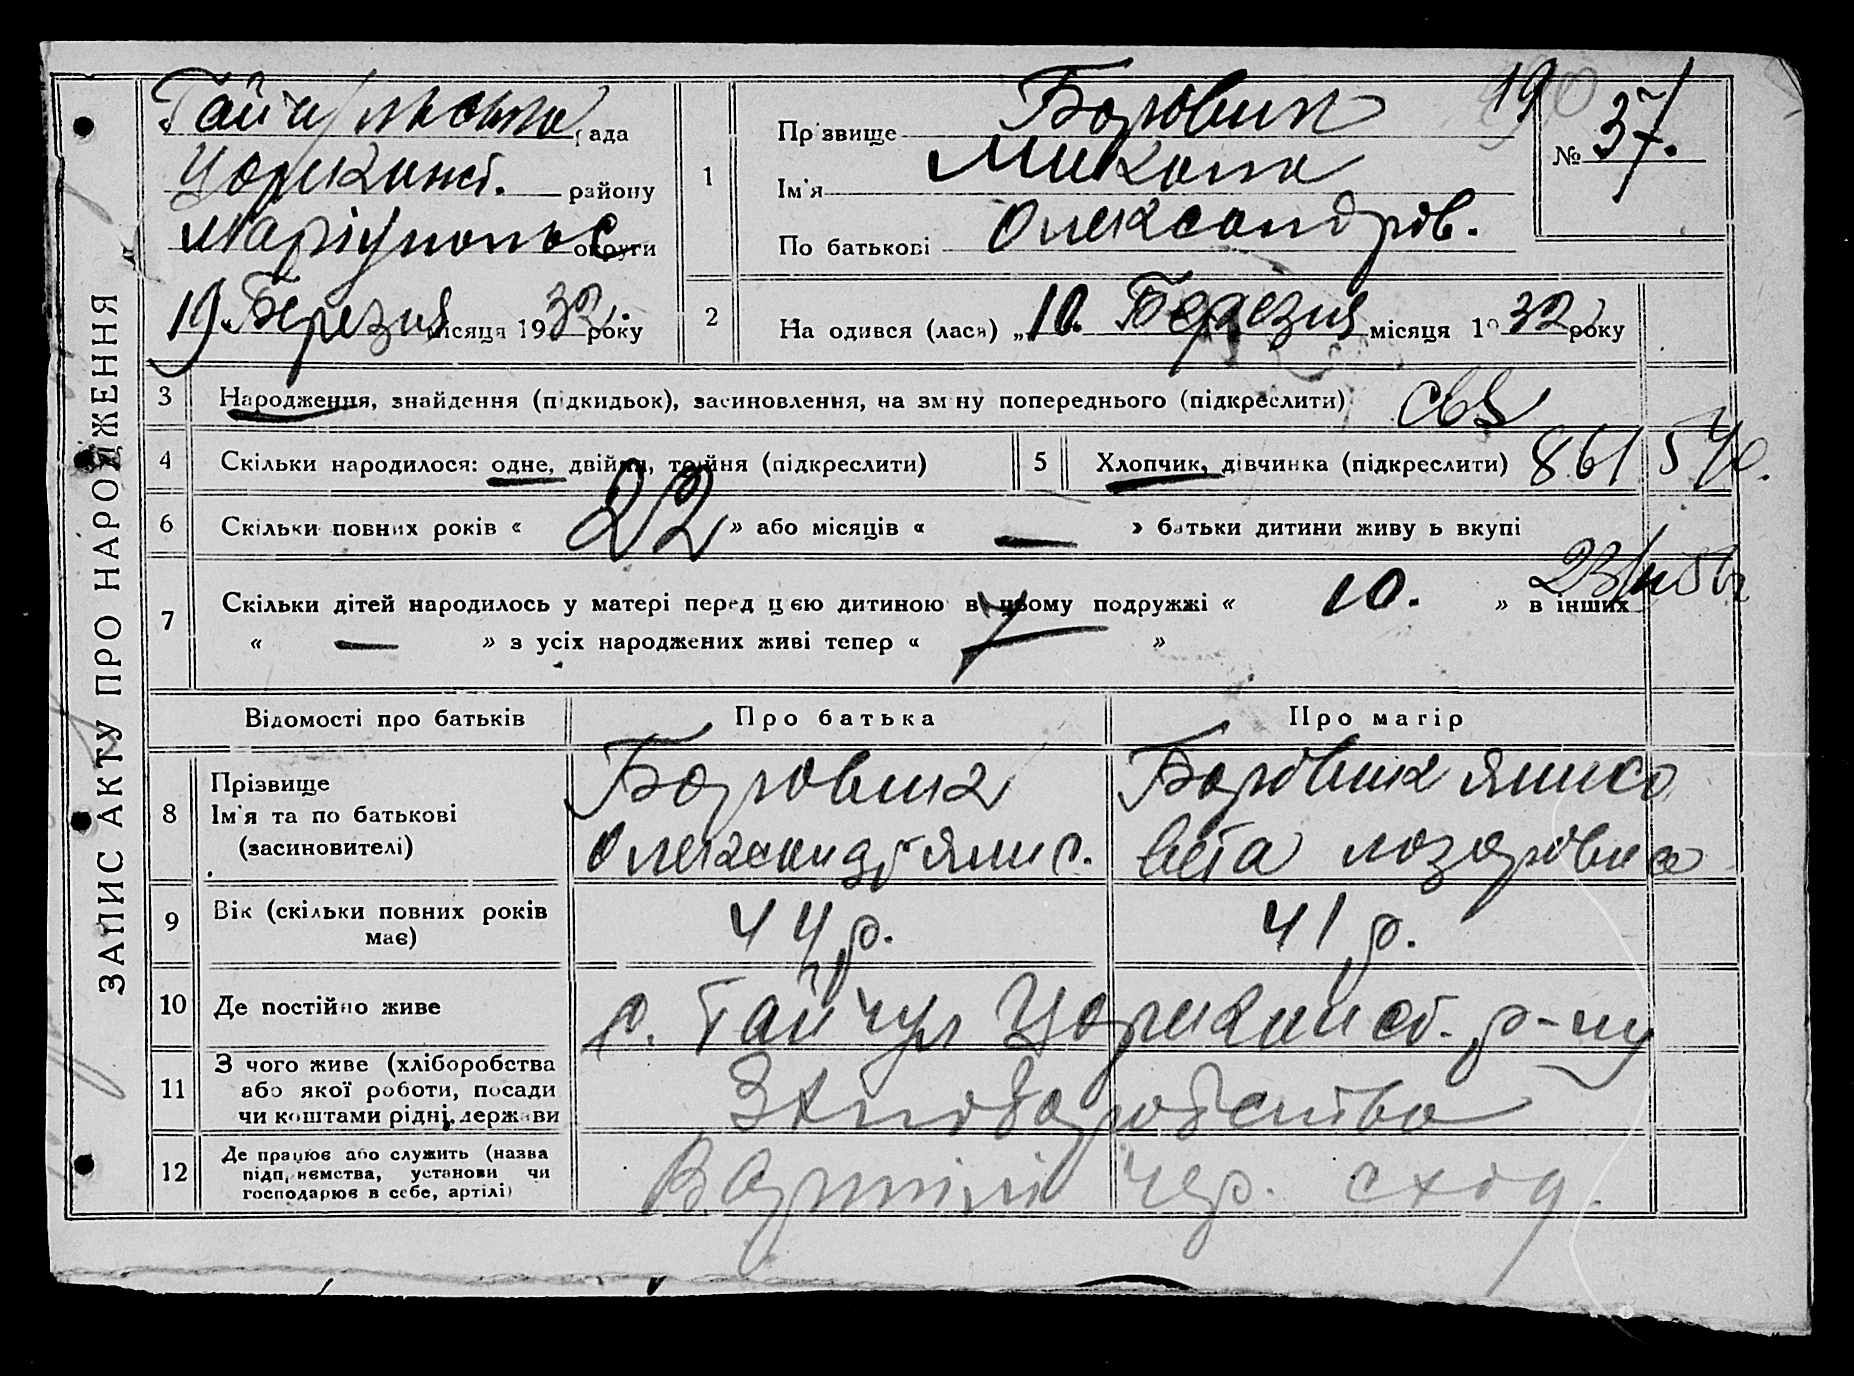 ЗАПИС АКТУ ПРО НАРОДЖЕННЯ
Гайчульська рада
Царекинст. району
Маріупольс округи
19 Березня місяця 1932. року
1 Прізвище Боровик
Ім'я Микола
По батькові Олександров.
19
№ 37.
2 На одився (лася) „10. Березня місяця 19 32 року
3 Народження, знайдення (підкидьок), засиновлення, на зміну попереднього (підкреслити) свд
4 Скільки народилося: одне, двійня, тройня (підкреслити)
5 Хлопчик, дівчинка (підкреслити) 861
6 Скільки повних років « 22 » або місяців « — » батьки дитини живуть вкупі
7 Скільки дітей народилось у матері перед цією дитиною в цьому подружжі « 10. » в інших
« — » з усіх народжених живі тепер « 7 »
Відомості про батьків Про батька Про матір
8 Прізвище
Ім'я та по батькові
(засиновителі)
Боровик
Олександр
Боровик Єлиса
вета Лазаровна
9 Вік (скільки повних років має) 44 р. 41 р.
10 Де постійно живе с. Гайчул Царекинст. р-ну
11 З чого живе (хліборобства
або якої роботи, посади
чи коштами рідні, держави
З хліборобства
12 Де працює або служить (назва
підприємства, установи чи
господарює в себе, артілі)
В артілі Чер. схід.